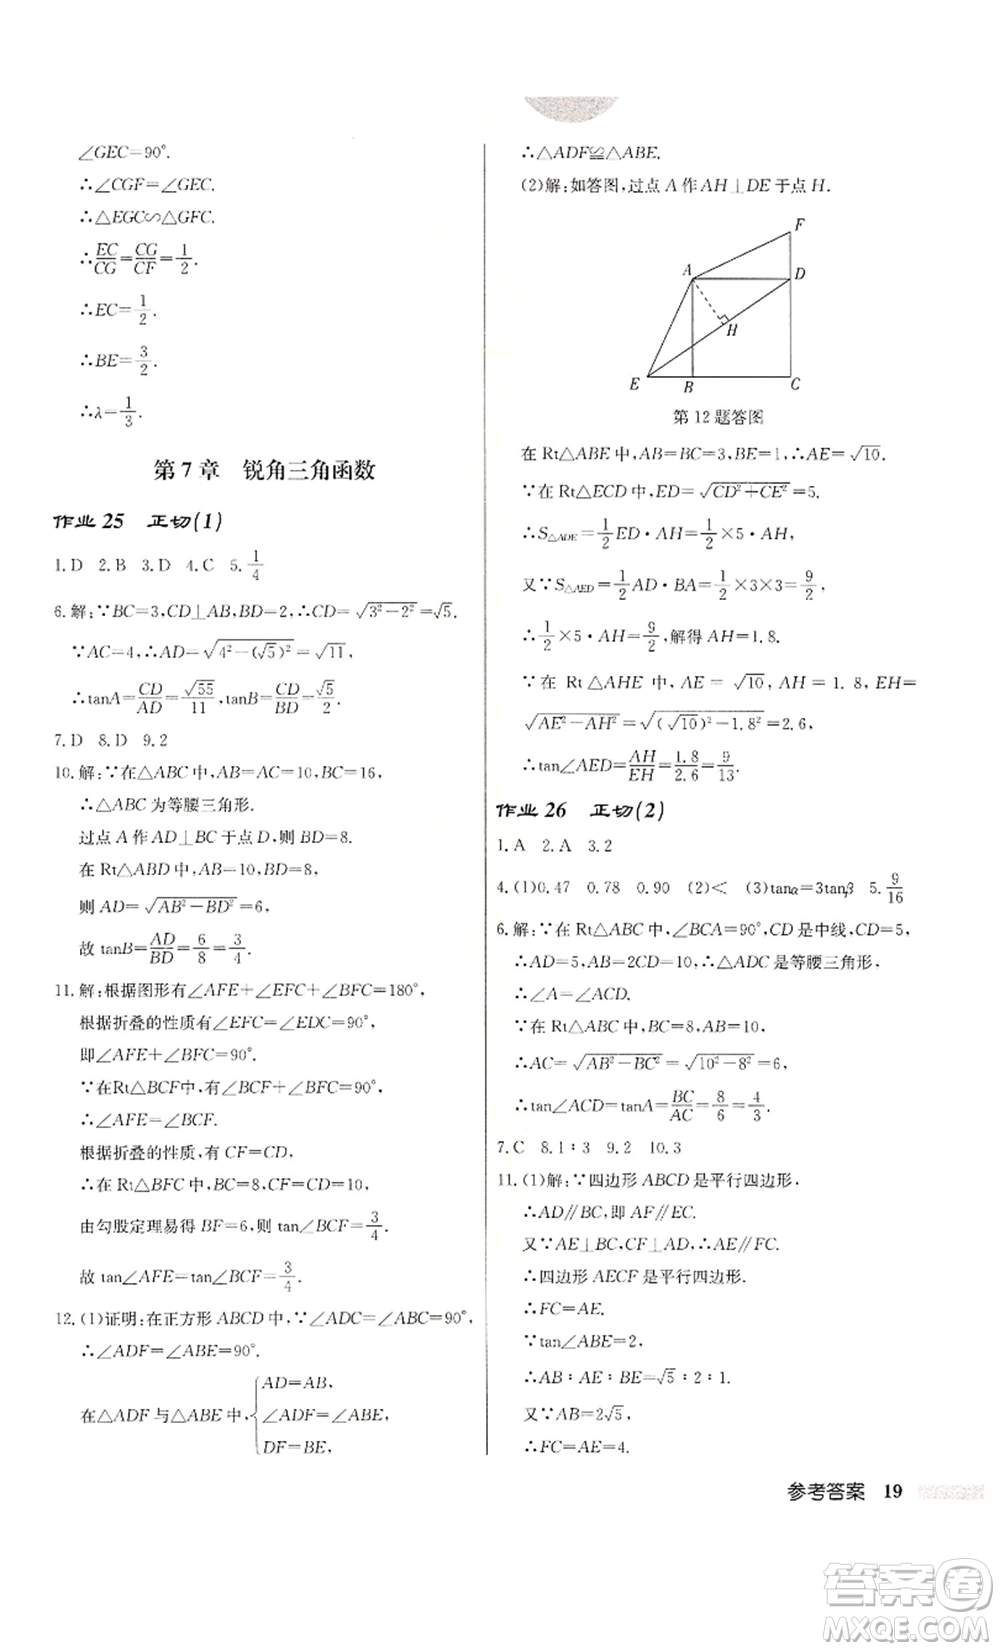 ∠GEC=90°.
∴∠CGF=∠GEC.
∴△EGC∽△GFC.
∴EC/CG=CG/CF=1/2.
∴EC=1/2.
∴BE=3/2.
∴λ=1/3.
第7章 锐角三角函数
作业25 正切(1)
1.D 2.B 3.D 4.C 5.1/4
6.解:∵BC=3,CD⊥AB,BD=2,∴CD=√(3²-2²)=√5.
∵AC=4,∴AD=√(4²-(√5)²)=√11,
∴tanA=CD/AD=√55/11,tanB=CD/BD=√5/2.
7.D 8.D 9.2
10.解:∵在△ABC中,AB=AC=10,BC=16,
∴△ABC为等腰三角形.
过点A作AD⊥BC于点D,则BD=8.
在Rt△ABD中,AB=10,BD=8,
则AD=√(AB²-BD²)=6,
故tanB=AD/BD=6/8=3/4.
11.解:根据图形有∠AFE+∠EFC+∠BFC=180°,
根据折叠的性质有∠EFC=∠EDC=90°,
即∠AFE+∠BFC=90°.
∵在Rt△BCF中,有∠BCF+∠BFC=90°,
∴∠AFE=∠BCF.
根据折叠的性质,有CF=CD,
∴在Rt△BFC中,BC=8,CF=CD=10,
由勾股定理易得BF=6,则tan∠BCF=3/4.
故tan∠AFE=tan∠BCF=3/4.
12.(1)证明:在正方形ABCD中,∵∠ADC=∠ABC=90°,
∴∠ADF=∠ABE=90°.
在△ADF与△ABE中,{AD=AB,
∠ADF=∠ABE,
DF=BE,
∴△ADF≌△ABE.
(2)解:如答图,过点A作AH⊥DE于点H.
F
A
D
H
E
B
C
第12题答图
在Rt△ABE中,∵AB=BC=3,BE=1,∴AE=√10.
∵在Rt△ECD中,ED=√(CD²+CE²)=5,
∴S△ADE=1/2ED·AH=1/2×5·AH,
又∵S△AED=1/2AD·BA=1/2×3×3=9/2,
∴1/2×5·AH=9/2,解得AH=1.8.
∵在Rt△AHE中,AE=√10,AH=1.8,EH=
√(AE²-AH²)=√((√10)²-1.8²)=2.6,
∴tan∠AED=AH/EH=1.8/2.6=9/13.
作业26 正切(2)
1.A 2.A 3.2
4.(1)0.47 0.78 0.90 (2)< (3)tanα=3tanβ 5.9/16
6.解:∵在Rt△ABC中,∠BCA=90°,CD是中线,CD=5,
∴AD=5,AB=2CD=10,∴△ADC是等腰三角形,
∴∠A=∠ACD.
∵在Rt△ABC中,BC=8,AB=10,
∴AC=√(AB²-BC²)=√(10²-8²)=6,
∴tan∠ACD=tanA=BC/AC=8/6=4/3.
7.C 8.1∶3 9.2 10.3
11.(1)解:∵四边形ABCD是平行四边形,
∴AD∥BC,即AF∥EC.
又∵AE⊥BC,CF⊥AD,∴AE∥FC.
∴四边形AECF是平行四边形.
∴FC=AE.
∵tan∠ABE=2,
∴AB∶AE∶BE=√5∶2∶1.
又∵AB=2√5,
∴FC=AE=4.
参考答案 19
答案卷
MXQE.COM